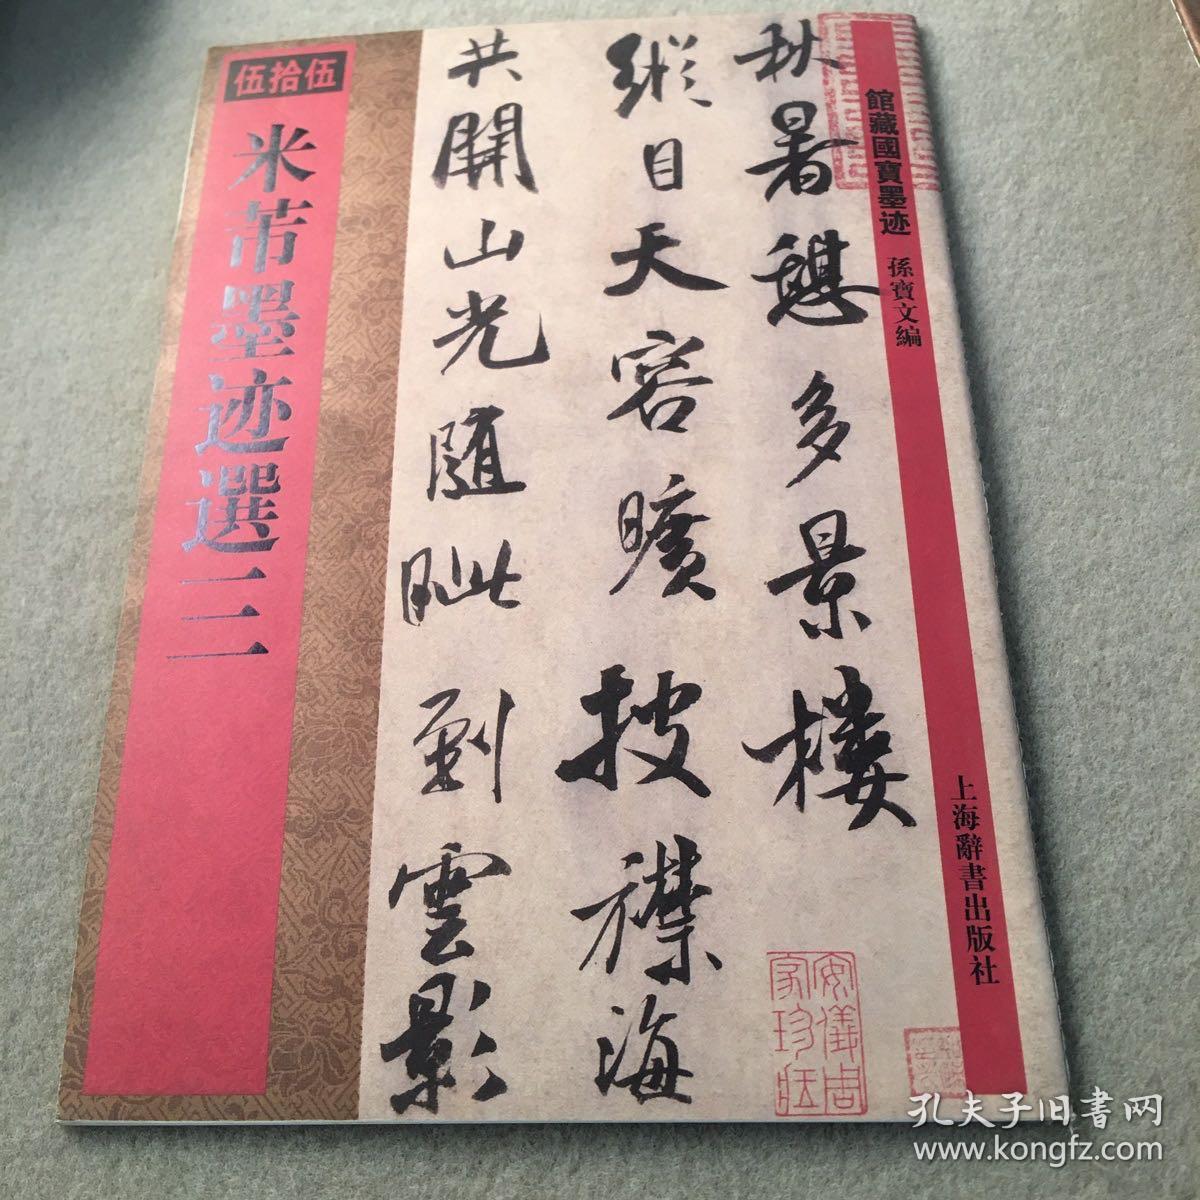 館藏國寶墨迹 孫寶文編
上海辭書出版社
秋暑憩多景樓
縱目天容曠披襟海
共開山光隨眦到雲影
伍拾伍
米芾墨迹選三
安儀周家珍藏
孔夫子旧书网
www.kongfz.com